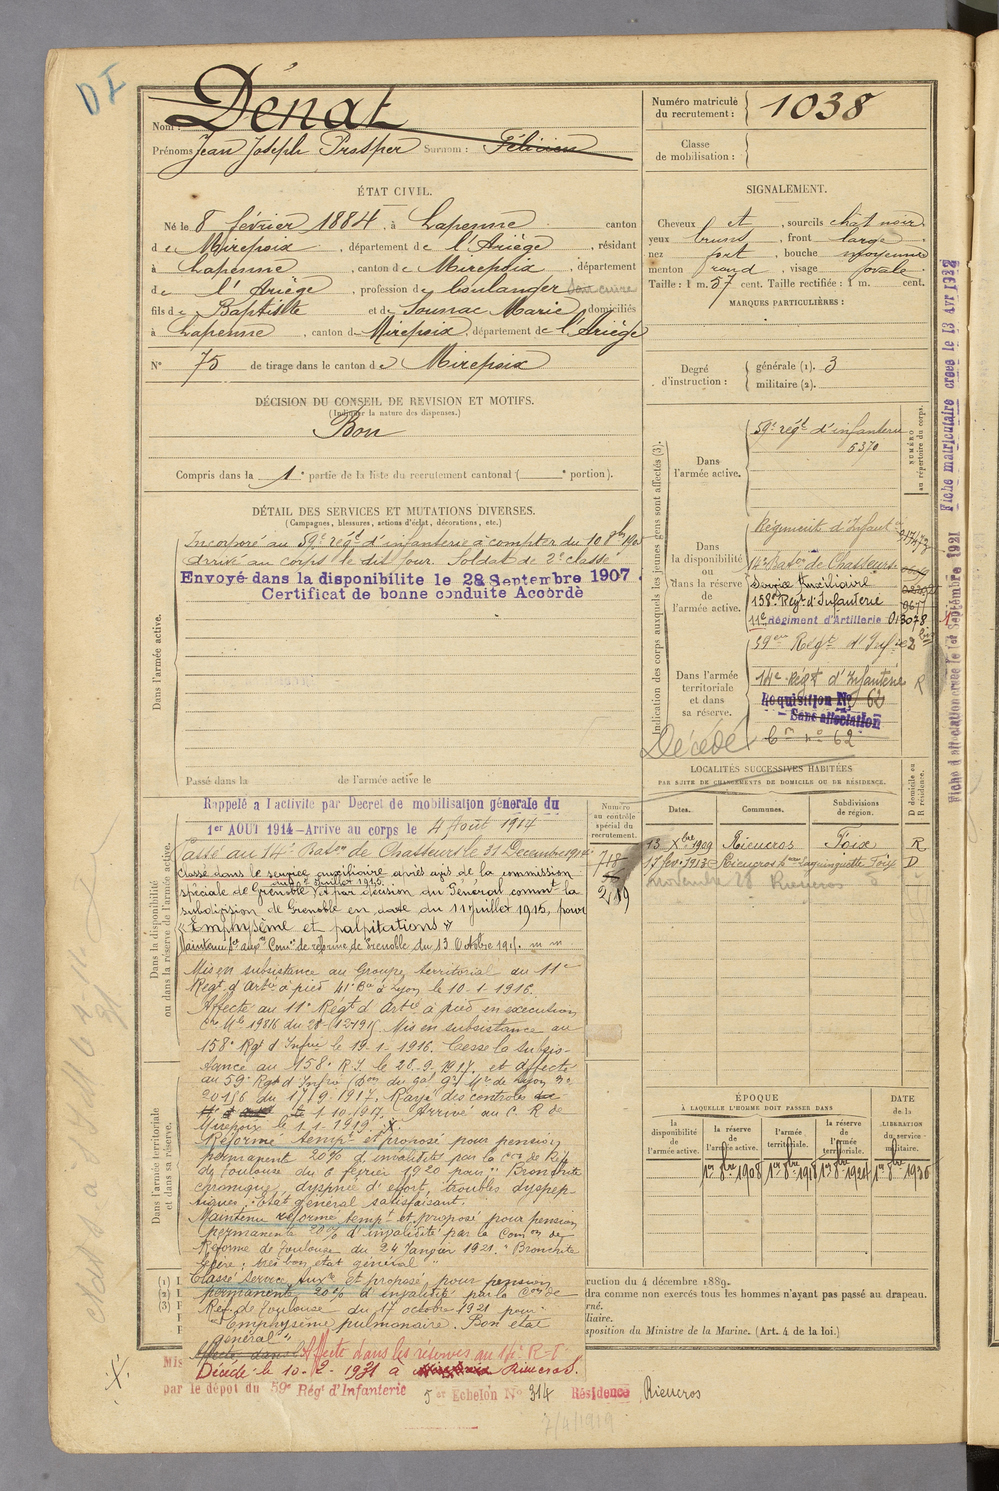 DI
Nom : Dénat
Prénoms Jean Joseph Prosper Surnom : Félicien
Numéro matricule du recrutement : 1038
Classe de mobilisation :
ÉTAT CIVIL.
Né le 8 février 1884, à Lapenne canton
de Mirepoix, département de l'Ariège, résidant
à Lapenne, canton de Mirepoix, département
de l'Ariège, profession de boulanger
fils de Baptiste et de Sounac Marie, domiciliés
à Lapenne, canton de Mirepoix, département de l'Ariège
N° 75 de tirage dans le canton de Mirepoix
SIGNALEMENT.
Cheveux et, sourcils chât noir
yeux bruns, front large
nez fort, bouche moyenne
menton rond, visage ovale
Taille : 1 m. 57 cent. Taille rectifiée : 1 m. cent.
MARQUES PARTICULIÈRES :
Degré d'instruction : générale (1). 3
militaire (2).
DÉCISION DU CONSEIL DE REVISION ET MOTIFS.
(Indiquer la nature des dispenses.)
Bon
Compris dans la 1e partie de la liste du recrutement cantonal ( e portion).
DÉTAIL DES SERVICES ET MUTATIONS DIVERSES.
(Campagnes, blessures, actions d'éclat, décorations, etc.)
Dans l'armée active.
Incorporé au 59e régt d'infanterie à compter du 10 8bre
arrivé au corps le dit jour. Soldat de 2e classe
Envoyé dans la disponibilite le 28 Septembre 1907.
Certificat de bonne conduite Accordé
Passé dans la de l'armée active le
Indication des corps auxquels les jeunes gens sont affectés (3).
NUMÉRO au répertoire du corps.
Dans l'armée active.
59e régt d'infanterie
5370
Dans la disponibilité ou dans la réserve de l'armée active.
Régiment d'Infanterie
14e Baton de Chasseurs
Service Auxiliaire
158e Regt d'Infanterie 9677
11e Régiment d'Artillerie 013078
Dans l'armée territoriale et dans sa réserve.
59eme Regt d'Infie
14e Régt d'Infanterie R
Réquisition No 62
- Sans affectation
Con no 62
Décédé
Fiche d'affectation créée le 1er Septembre 1921 Fiche matriculaire créée le 13 AVR 1932
LOCALITÉS SUCCESSIVES HABITÉES
PAR SUITE DE CHANGEMENTS DE DOMICILE OU DE RÉSIDENCE.
D domicile ou R résidence.
Dates. Communes. Subdivisions de région.
13 Xbre 1909 Rieucros Foix R
Rieucros Foix D
novembre Rieucros
Dans la disponibilité ou dans la réserve de l'armée active.
Numéro au contrôle spécial du recrutement.
718
Rappelé à l'activité par Decret de mobilisation génerale du
1er AOUT 1914 – Arrive au corps le 4 Août 1914
Passé au 14e Baton de Chasseurs le 31 Decembre 1914
classé dans le service auxiliaire après avis de la commission
spéciale de Grenoble et par décision du Général commt la
subdivision de Grenoble en date du 11 Juillet 1915, pour
« Emphysème et palpitations »
Maintenu Ser auxre Comon de réforme de Grenoble du 13 Octobre 1915.
Mis en subsistance au Groupe territorial du 11e
Regt d'Artie à pied 41e Bie à Lyon le 10-1-1916.
Affecté au 11e Régt d'Artie à pied en execution
Mis en subsistance au
158e Rgt d'Infrie le 19-1-1916. Cesse la subsis-
tance au 158e R.I. le 28-9-1917, et affecté
au 59e Rgt d'Infrie (Don du gal Gr Mre de Lyon
20186 du 17/9-1917. Rayé des contrôles
le 1-10-1917. Arrivé au C.R. de
Mirepoix le 1-1-1919.
Dans l'armée territoriale et dans sa réserve.
Réformé tempt et proposé pour pension
permanente 20% d'invalidité par la con de Réf
de Toulouse du 6 février 1920 pour " Bronchite
chronique, dyspnée d'effort, troubles dyspep-
tiques. Etat général satisfaisant.
Maintenu réformé tempt et proposé pour pension
permanente 20% d'invalidité par la Comon de
Réforme de Toulouse du 24 Janvier 1921. " Bronchite
légère ; très bon état général "
Classé service Auxre et proposé pour pension
permanente 20% d'invalidité par la Con de
Réf de Toulouse du 17 octobre 1921 pour
" Emphysème pulmonaire. Bon état
général "
Affecté dans les réserves au 14e R-I-
Décédé le 10-2-1931 à Rieucros.
ÉPOQUE
À LAQUELLE L'HOMME DOIT PASSER DANS
DATE de la LIBÉRATION du service militaire.
la disponibilité de l'armée active. la réserve de l'armée active. l'armée territoriale. la réserve de l'armée territoriale.
1er 8bre 1908 1er 8bre 1918 1er 8bre 1924 1er 8bre 1930
(1) I
(2) I
(3) I
ruction du 4 décembre 1889.
dra comme non exercés tous les hommes n'ayant pas passé au drapeau.
rné.
iliaire.
sposition du Ministre de la Marine. (Art. 4 de la loi.)
Mis
par le dépot du 59e Régt d'Infanterie 5 er Echelon No 314 Résidence Rieucros
7/4/1919